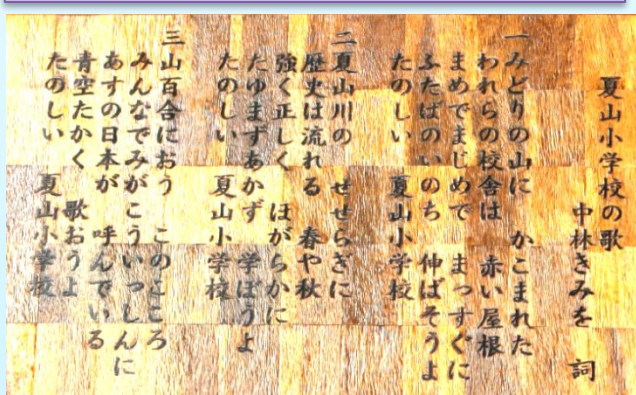 夏山小学校の歌
中林きみを　詞
一 みどりの山に　かこまれた
われらの校舎は　赤い屋根
まめでまじめで　まっすぐに
ふたばのいのち　伸ばそうよ
たのしい　夏山小学校
二 夏山川の　せせらぎに
歴史は流れる　春や秋
強く正しく　ほがらかに
たゆまずあかず　学ぼうよ
たのしい　夏山小学校
三 山百合におう　このこころ
みんなでみがこういっしんに
あすの日本が　呼んでいる
青空たかく　歌おうよ
たのしい　夏山小学校